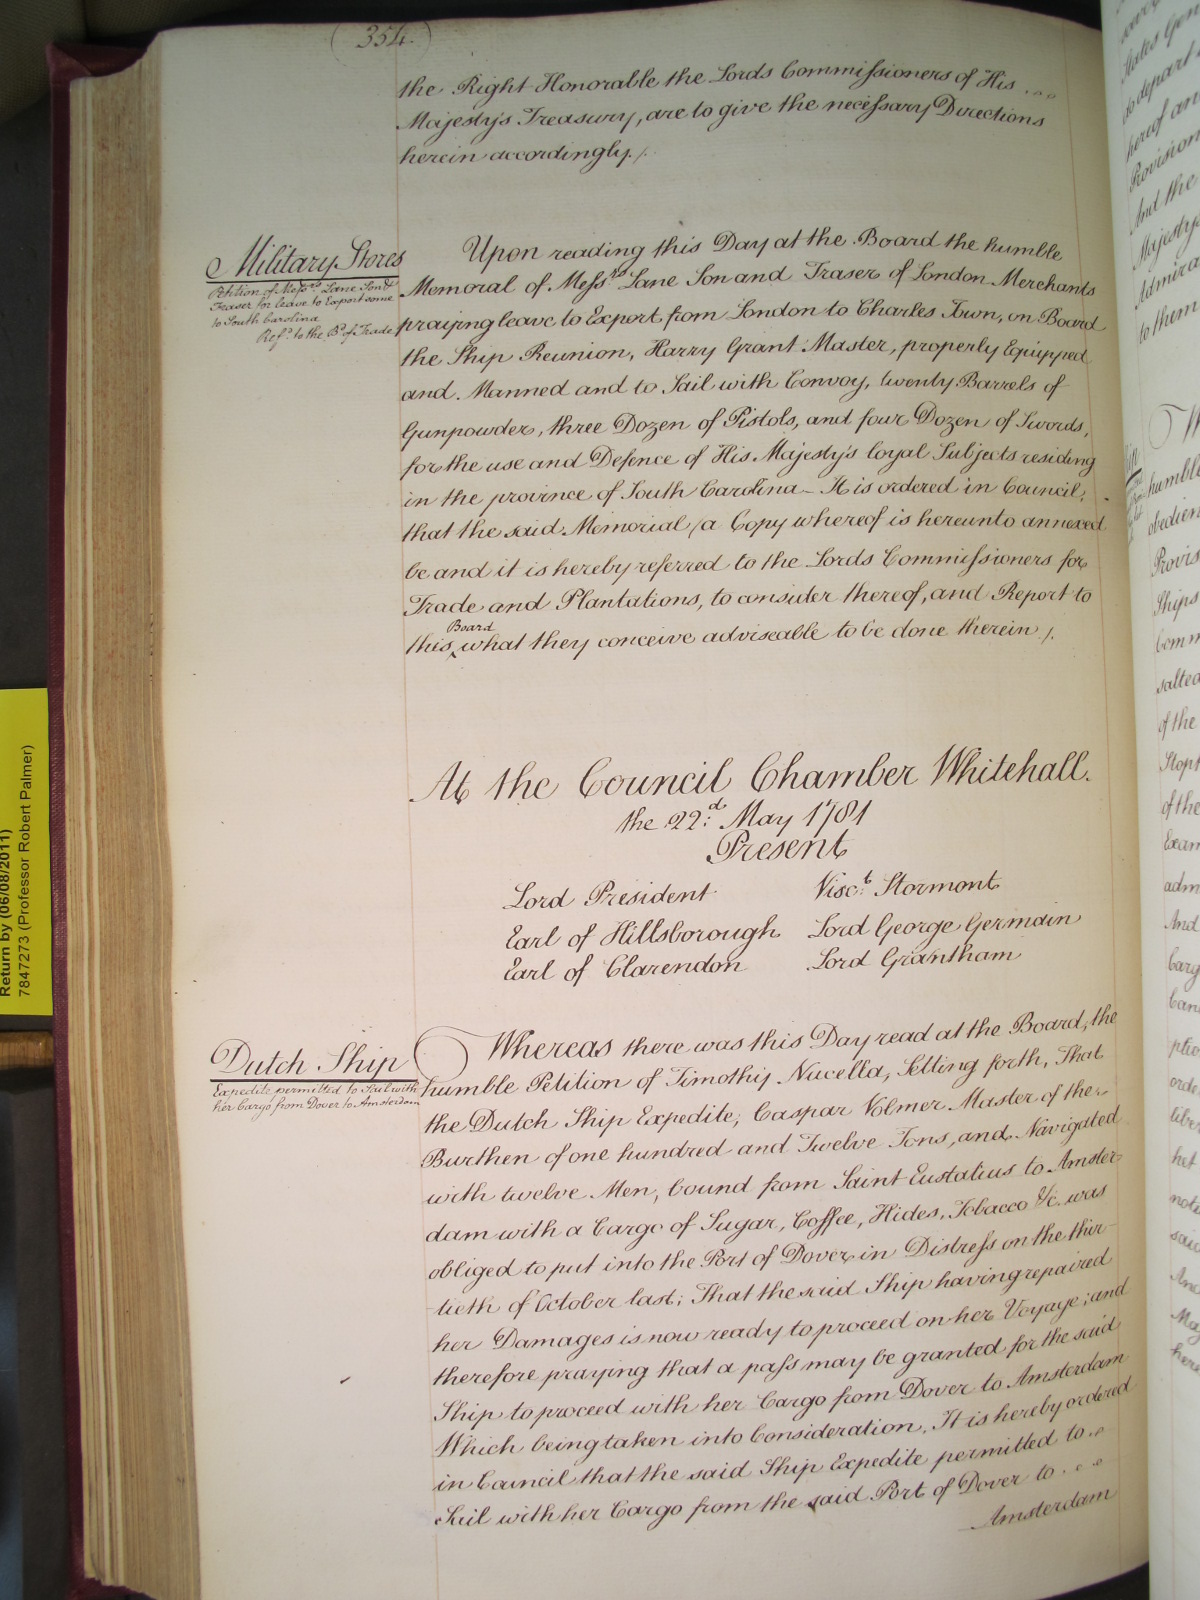 (354.)
the Right Honorable the Lords Commissioners of His ...
Majesty's Treasury, are to give the necessary Directions
herein accordingly./.
Military Stores
Petition of Messrs. Lane Son &
Fraser for leave to Export some
to South Carolina
Ref.d to the B.d of Trade
Upon reading this Day at the Board the humble
Memorial of Messrs Lane Son and Fraser of London Merchants
praying leave to Export from London to Charles Town, on Board
the Ship Reunion, Harry Grant Master, properly Equipped
and Manned and to Sail with Convoy, twenty Barrels of
Gunpowder, three Dozen of Pistols, and four Dozen of Swords,
for the use and Defence of His Majesty's loyal Subjects residing
in the province of South Carolina - It is ordered in Council,
that the said Memorial (a Copy whereof is hereunto annexed
be and it is hereby referred to the Lords Commissioners for
Trade and Plantations, to consider thereof, and Report to
this Board what they conceive adviseable to be done therein./.
At the Council Chamber Whitehall.
the 22.d May 1781
Present
Lord President Visc.t Stormont
Earl of Hillsborough Lord George Germain
Earl of Clarendon Lord Grantham
Dutch Ship
Expedite permitted to Sail with
her Cargo from Dover to Amsterdam
Whereas there was this Day read at the Board, the
humble Petition of Timothy Nucella, Setting forth, That
the Dutch Ship Expedite, Caspar Volmer Master of the
Burthen of one hundred and Twelve Tons, and Navigated
with twelve Men, bound from Saint Eustatius to Amster-
dam with a Cargo of Sugar, Coffee, Hides, Tobacco &c. was
obliged to put into the Port of Dover in Distress on the thir-
tieth of October last; That the said Ship having repaired
her Damages is now ready to proceed on her Voyage; and
therefore praying that a pass may be granted for the said
Ship to proceed with her Cargo from Dover to Amsterdam
Which being taken into Consideration, It is hereby ordered
in Council that the said Ship Expedite permitted to ..
Sail with her Cargo from the said Port of Dover to ...
Amsterdam
Return by (06/08/2011)
7847273 (Professor Robert Palmer)